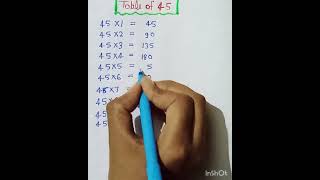 Table of 45
45 × 1 = 45
45 × 2 = 90
45 × 3 = 135
45 × 4 = 180
45 × 5 = 5
45 × 6 = 0
45 × 7 =
45 ×
45
45
InShOt